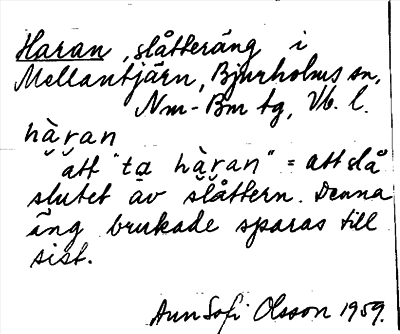 Haran, slåtteräng i
Mellantjärn, Bjurholms sn,
Nm-Bm tg, Vb. l.
hàran
att "ta hàran" = att slå
slutet av slåttern. Denna
äng brukade sparas till
sist.
Ann Sofi Olsson 1959.